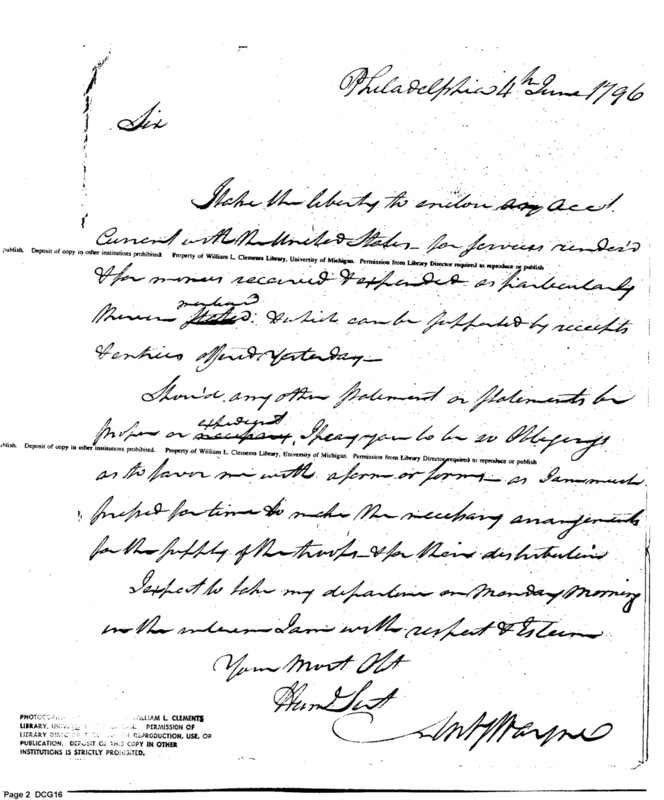 Philadelphia 4th June 1796
Sir
I take the liberty to enclose any acct.
Current with the United States for services render'd
publish. Deposit of copy in other institutions prohibited. Property of William L. Clements Library, University of Michigan. Permission from Library Director required to reproduce or publish
& for monies received & expended as particularly
mentioned
therein stated: & which can be supported by receipts
& entries offered yesterday—
Shou'd any other statement or statements be
expedient
proper or necessary, I pray you to be so Obligeing
ublish. Deposit of copy in other institutions prohibited. Property of William L. Clements Library, University of Michigan. Permission from Library Director required to reproduce or publish
as to favor me with a form or forms— as I am much
pressed for time to make the necessary arrangements
for the supply of the troops— & for their distribution
I expect to take my departure on Monday Morning
in the interim I am with respect & Esteem
Your Most Obt
Huml Sert
Anty Wayne
WILLIAM L. CLEMENTS
LIBRARY, PERMISSION OF
LIBRARY REPRODUCTION, USE, OR
PUBLICATION. DEPOSIT OF THIS COPY IN OTHER
INSTITUTIONS IS STRICTLY PROHIBITED.
Page 2 DCG16